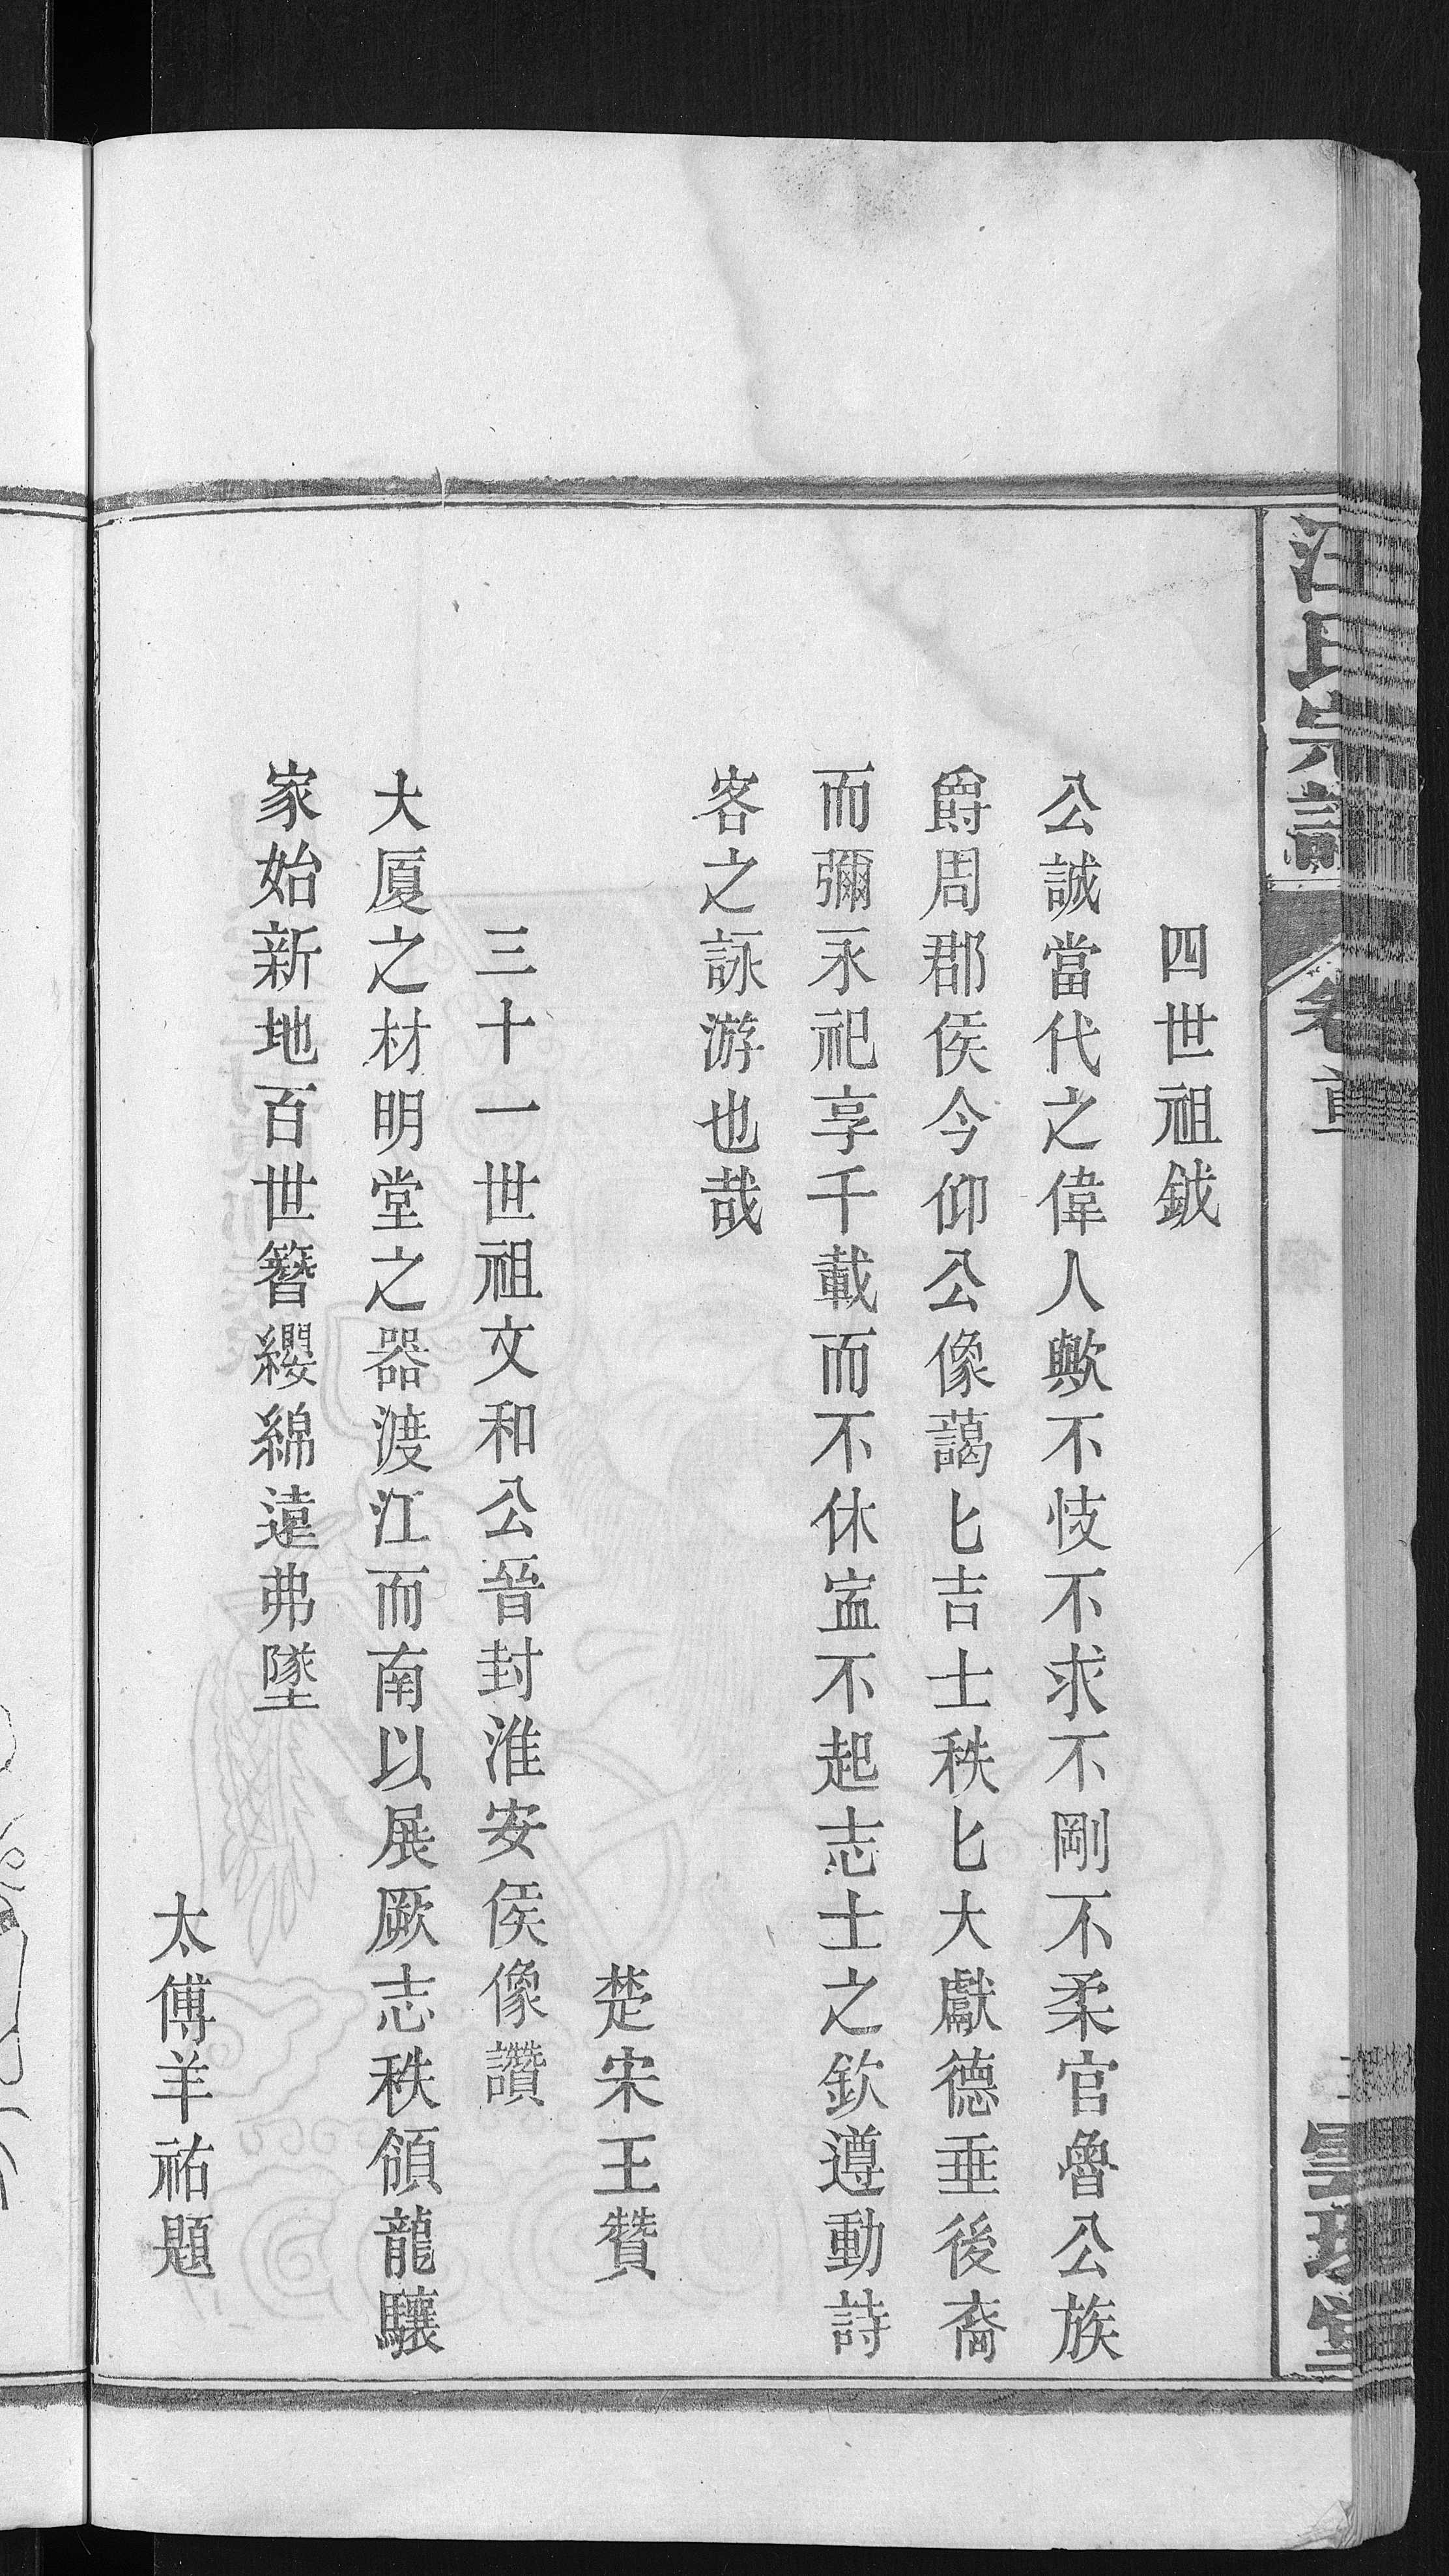 汪氏宗譜
卷首
四世祖鉞
公誠當代之偉人歟不忮不求不剛不柔官魯公族
爵周郡侯今仰公像藹匕吉士秩匕大猷德垂後裔
而彌永祀享千載而不休寍不起志士之欽遵動詩
客之詠游也哉
楚宋王贊
三十一世祖文和公晉封淮安侯像讚
大厦之材明堂之器渡江而南以展厥志秩領龍驤
家始新地百世簪纓綿遠弗墜
太傅羊祜題